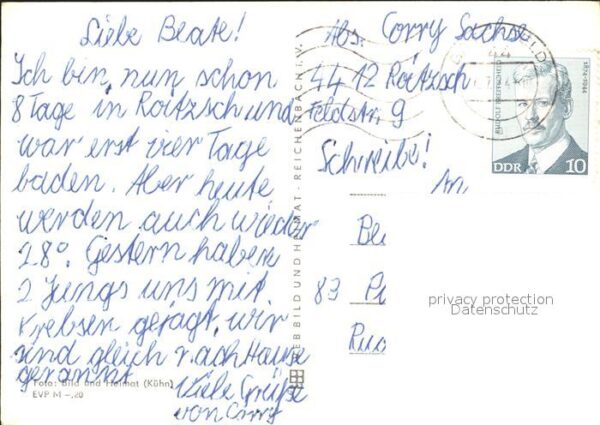 Liebe Beate!
Ich bin nun schon
8 Tage in Roitzsch und
war erst vier Tage
baden. Aber heute
werden auch wieder
28°. Gestern haben
2 Jungs uns mit
Krebsen gejagt, wir
sind gleich nach Hause
gerannt.
Viele Grüße
von Corry
Foto: Bild und Heimat (Kühn)
EVP M -,20
VEB BILD UND HEIMAT · REICHENBACH I. V.
Abs. Corry Sachse
4412 Roitzsch
Feldstr. 9
Schreibe!
An
Be
83 Pi
Ruo
RUDOLF BREITSCHEID
1874-1944
DDR 10
privacy protection
Datenschutz